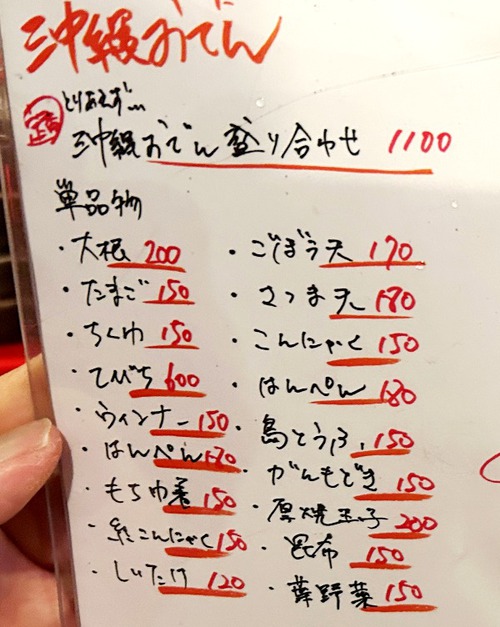 沖縄おでん
とりあえず…
沖縄おでん盛り合わせ 1100
単品物
・大根 200
・たまご 150
・ちくわ 150
・てびち 600
・ウィンナー 150
・はんぺん 180
・もち巾着 150
・糸こんにゃく 150
・しいたけ 120
・ごぼう天 170
・さつま天 180
・こんにゃく 150
・はんぺん 180
・島とうふ 150
・がんもどき 150
・厚焼玉子 200
・昆布 150
・葉野菜 150